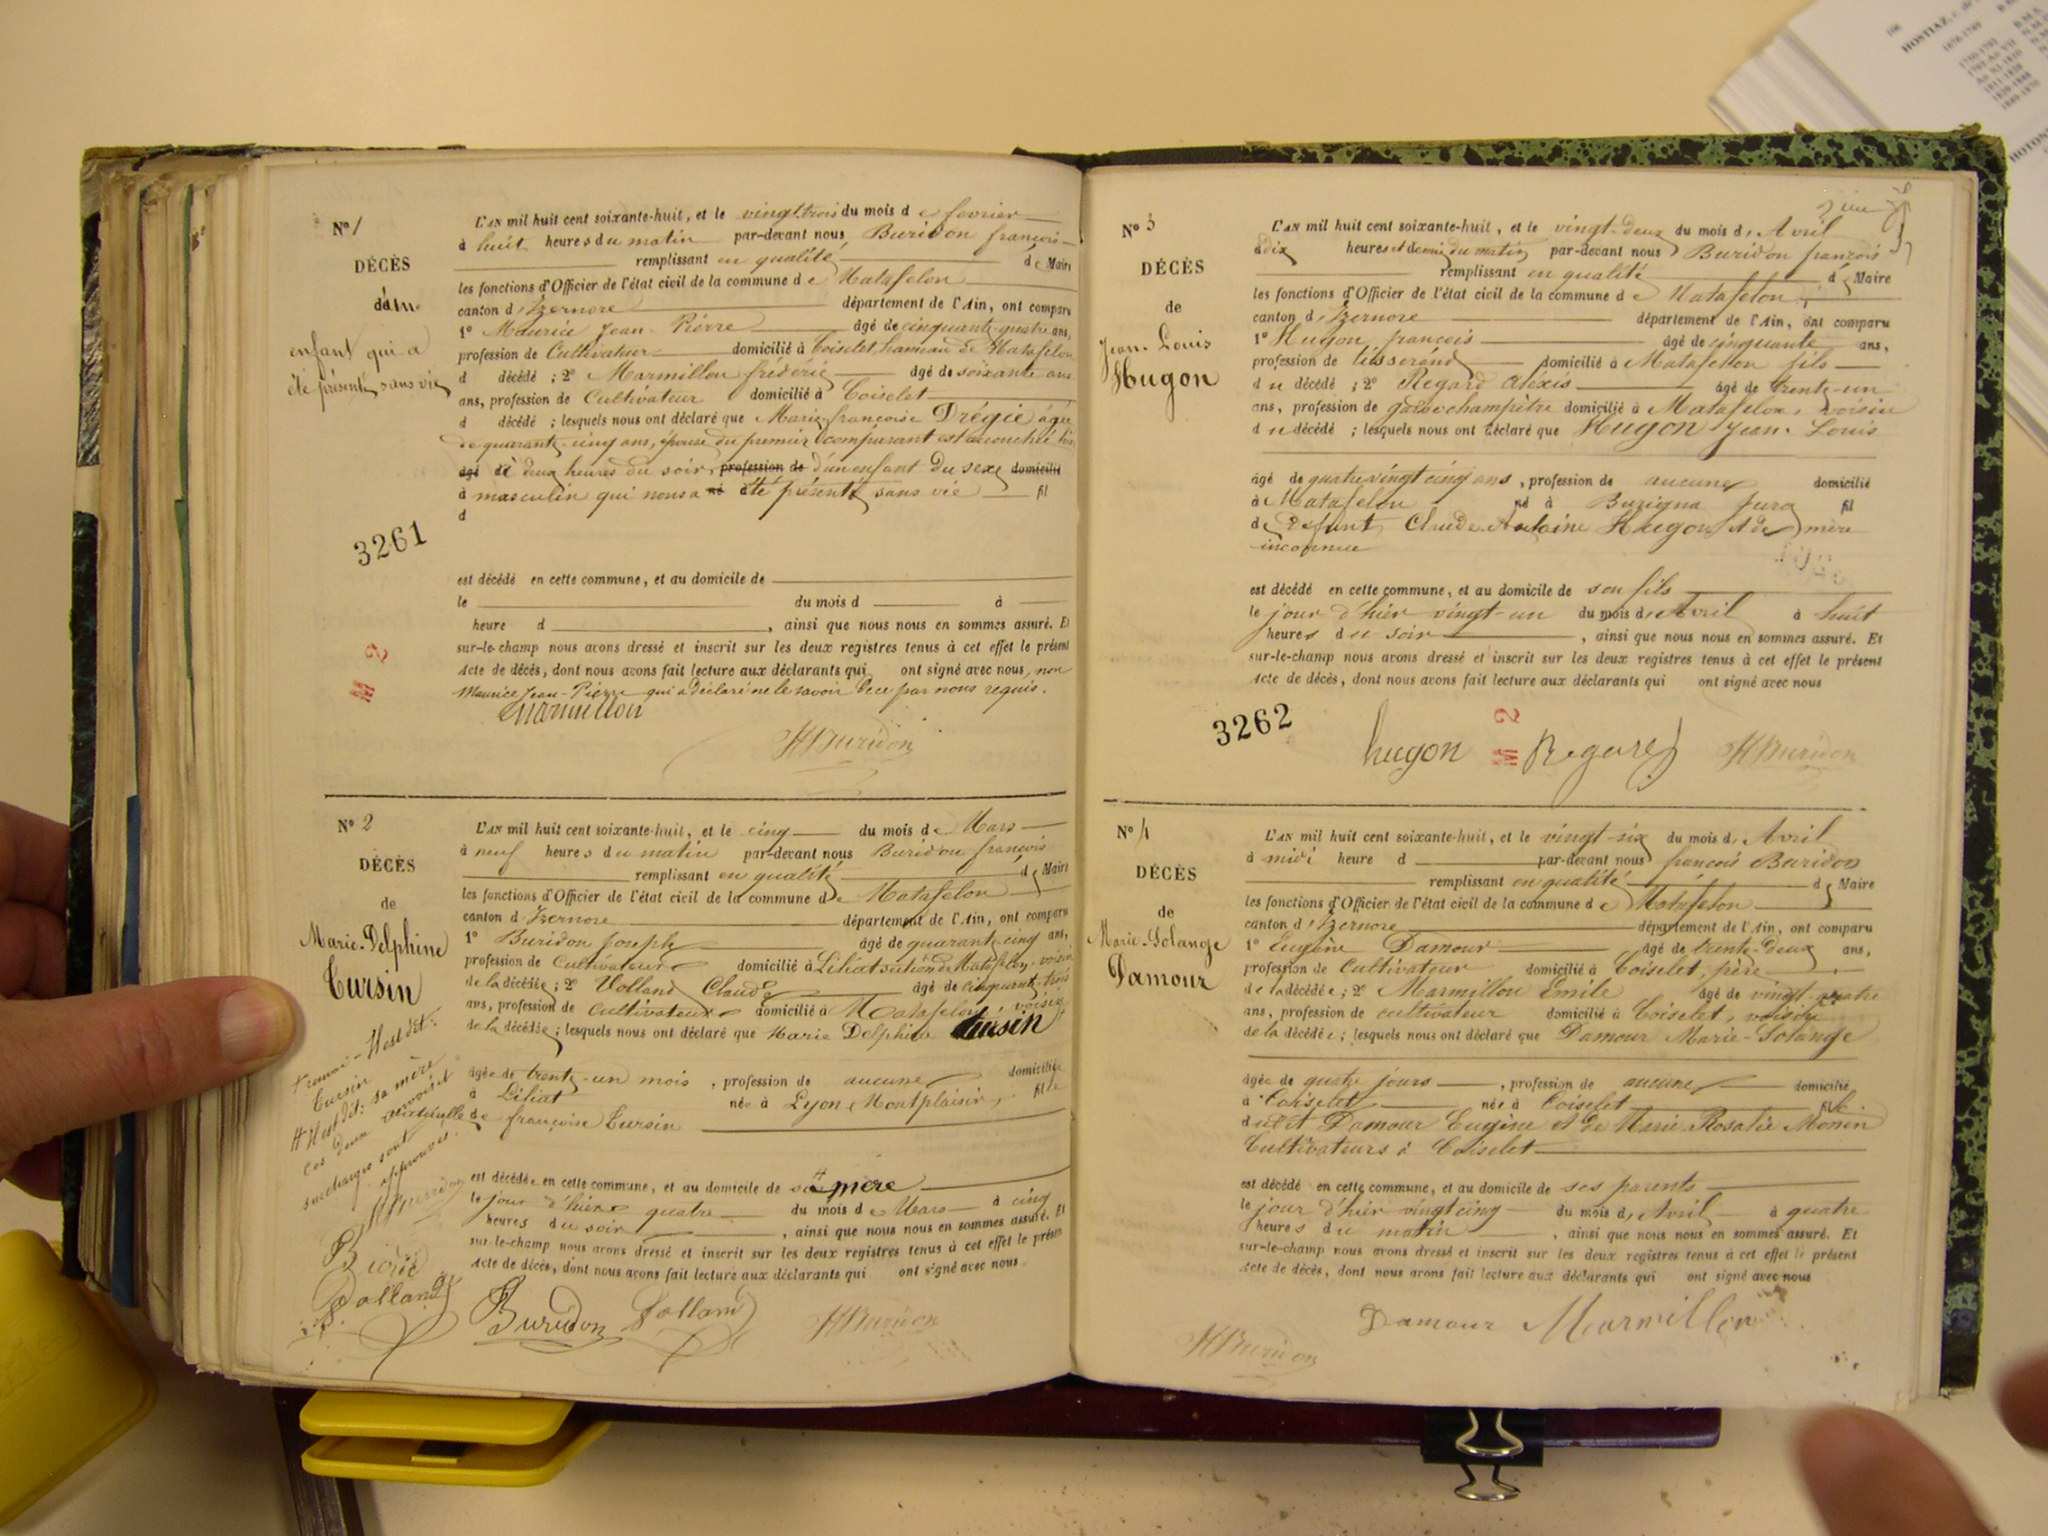 N° 1
DÉCÈS
d'un
enfant qui a
été présenté sans vie
L'AN mil huit cent soixante-huit, et le vingt trois du mois de fevrier
à huit heures du matin par-devant nous Buridon françois
remplissant en qualité de Maire
les fonctions d'Officier de l'état civil de la commune de Matafelon
canton d'Izernore département de l'Ain, ont comparu
1° Maurice Jean-Pierre âgé de cinquante-quatre ans,
profession de Cultivateur domicilié à Coiselet, hameau de Matafelon
d décédé ; 2° Marmillon fréderic âgé de soixante ans
ans, profession de Cultivateur domicilié à Coiselet
d décédé ; lesquels nous ont déclaré que Marie-françoise Drégie âgée
de quarante-cinq ans, épouse du premier comparant est accouchée
âgé de deux heures du soir, profession de d'un enfant du sexe domicilié
à masculin qui nous a né été présenté sans vie fil
d
3261
est décédé en cette commune, et au domicile de
le du mois d à
heure d , ainsi que nous nous en sommes assuré. Et
sur-le-champ nous avons dressé et inscrit sur les deux registres tenus à cet effet le présent
acte de décès, dont nous avons fait lecture aux déclarants qui ont signé avec nous, non
Maurice Jean-Pierre qui a déclaré ne le savoir de ce par nous requis.
M 2
Marmillon
Buridon
N° 2
DÉCÈS
de
Marie-Delphine
Cursin
L'AN mil huit cent soixante-huit, et le cinq du mois de Mars
à neuf heures du matin par-devant nous Buridon françois
remplissant en qualité de Maire
les fonctions d'Officier de l'état civil de la commune de Matafelon
canton d'Izernore département de l'Ain, ont comparu
1° Buridon Joseph âgé de quarante cinq ans,
profession de Cultivateur domicilié à Liliat section de Matafelon, voisin
de la décédée ; 2° Volland Claude âgé de cinquante-trois
ans, profession de Cultivateur domicilié à Matafelon, voisin
de la décédée ; lesquels nous ont déclaré que Marie Delphine Cursin
âgée de trente-un mois, profession de aucune domiciliée
à Liliat née à Lyon Montplaisir, fille
de françoise Cursin
est décédée en cette commune, et au domicile de sa mère
le jour d'hier quatre du mois de Mars à cinq
heures du soir , ainsi que nous nous en sommes assuré. Et
sur-le-champ nous avons dressé et inscrit sur les deux registres tenus à cet effet le présent
acte de décès, dont nous avons fait lecture aux déclarants qui ont signé avec nous
Cursin
sa mère
ces deux
surcharges sont
approuvées.
Buridon
Volland
Buridon Volland Buridon
N° 3
DÉCÈS
de
Jean-Louis
Hugon
L'AN mil huit cent soixante-huit, et le vingt-deux du mois d'Avril
à dix heures et demie du matin par-devant nous Buridon françois
remplissant en qualité de Maire
les fonctions d'Officier de l'état civil de la commune de Matafelon,
canton d'Izernore département de l'Ain, ont comparu
1° Hugon françois âgé de cinquante ans,
profession de tisserand domicilié à Matafelon fils
du décédé ; 2° Regard Alexis âgé de trente-un
ans, profession de garde champêtre domicilié à Matafelon, voisin
du décédé ; lesquels nous ont déclaré que Hugon Jean-Louis
âgé de quatre vingt cinq ans, profession de aucune domicilié
à Matafelon né à Burigna Jura fil
de défunt Claude-Antoine Hugon et de mère
inconnue
est décédé en cette commune, et au domicile de son fils
le jour d'hier vingt-un du mois d'Avril à huit
heures du soir , ainsi que nous nous en sommes assuré. Et
sur-le-champ nous avons dressé et inscrit sur les deux registres tenus à cet effet le présent
acte de décès, dont nous avons fait lecture aux déclarants qui ont signé avec nous
3262
hugon M 2 Regard Buridon
N° 4
DÉCÈS
de
Marie-Solange
Damour
L'AN mil huit cent soixante-huit, et le vingt-six du mois d'Avril
à midi heure d par-devant nous françois Buridon
remplissant en qualité de Maire
les fonctions d'Officier de l'état civil de la commune de Matafelon
canton d'Izernore département de l'Ain, ont comparu
1° Eugène Damour âgé de trente-deux ans,
profession de Cultivateur domicilié à Coiselet, père
de la décédée ; 2° Marmillon Emile âgé de vingt-quatre
ans, profession de cultivateur domicilié à Coiselet, voisin
de la décédée ; lesquels nous ont déclaré que Damour Marie-Solange
âgée de quatre jours , profession de aucune domicilié
à Coiselet née à Coiselet fille
dudit Damour Eugène et de Marie Rosalie Monin
Cultivateurs à Coiselet
est décédé en cette commune, et au domicile de ses parents
le jour d'hier vingt cinq du mois d'Avril à quatre
heures du matin , ainsi que nous nous en sommes assuré. Et
sur-le-champ nous avons dressé et inscrit sur les deux registres tenus à cet effet le présent
acte de décès, dont nous avons fait lecture aux déclarants qui ont signé avec nous
Damour Marmillon
Buridon
HOSTIAZ